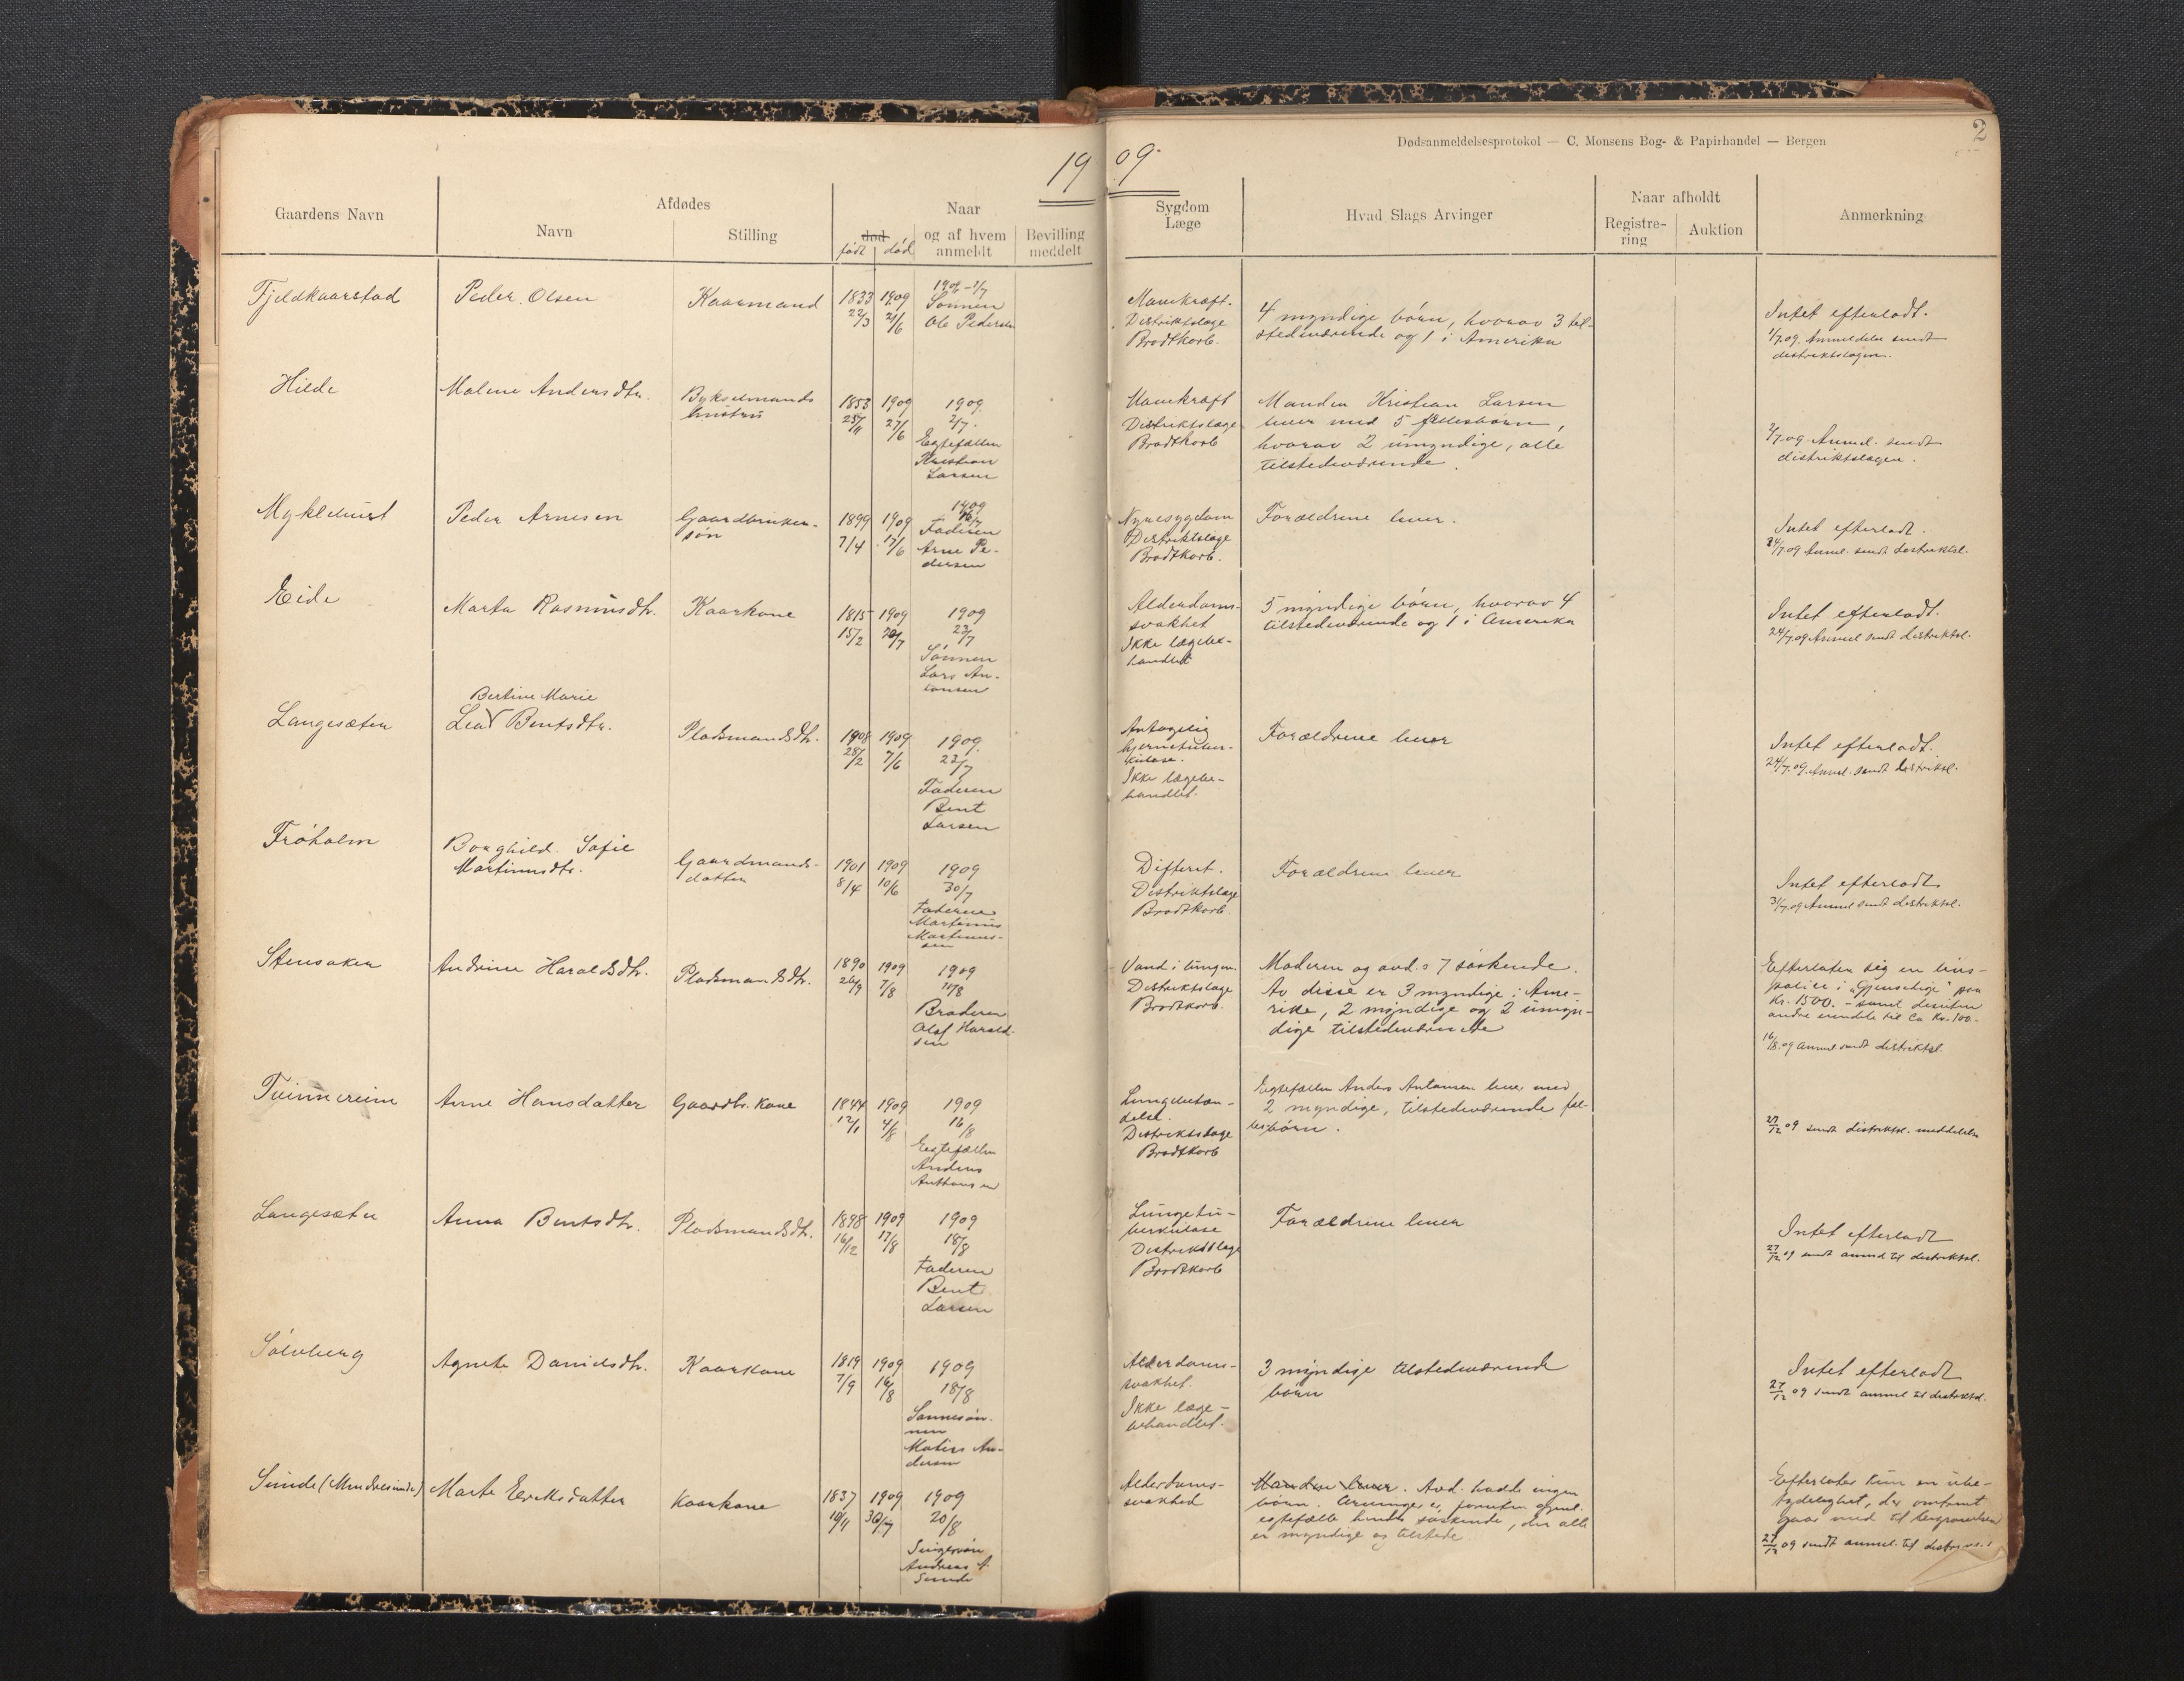 Dødsanmeldelsesprotokol — C. Monsens Bog- & Papirhandel — Bergen
2
1909.
Gaardens Navn
Afdødes
Navn
Stilling
Naar
død
født død
og af hvem
anmeldt
Bevilling
meddelt
Sygdom
Læge
Hvad Slags Arvinger
Naar afholdt
Registre-
ring
Auktion
Anmerkning
Fjeldkaarstad
Peder Olsen
Kaarmand
1833 22/3
1909 21/6
1909 - 1/7
Sønnen
Ole Pedersen
Mavekræft.
Distriktslæge
Brodtkorb.
4 myndige børn, hvorav 3 til-
stedeværende og 1 i Amerika
Intet efterladt.
1/7.09. Anmeldelse sendt
distriktslægen.
Hilde
Malene Andersdtr.
Bykselmands
hustru
1853
1909 27/6
1909.
2/7.
Egtefællen
Kristian
Larsen
Mavekræft
Distriktslæge
Brodtkorb
Manden Kristian Larsen
lever med 5 fællesbørn,
hvorav 2 umyndige, alle
tilstedeværende.
2/7.09 Anmel. sendt
distriktslægen.
Myklebust
Peder Arnesen
Gaardbruker-
søn
1899 7/4
1909 17/6
1909
Faderen
Arne Pe-
dersen
Nyresygdom
Distriktslæge
Brodtkorb.
Forældrene lever.
Intet efterladt.
24/7.09 Anmel. sendt distriktsl.
Eide
Marta Rasmusdtr.
Kaarkone
1815 15/2
1909 20/7
1909
23/7
Sønnen
Lars An-
tonsen
Alderdoms-
svakhet
Ikke lægebe-
handlet
5 myndige børn, hvorav 4
tilstedeværende og 1 i Amerika
Intet efterladt.
24/7.09 Anmel sendt distriktsl.
Langesæter
Bertine Marie
Lea Bentsdtr.
Pladsmandsdtr.
1908 28/2
1909 7/6
1909.
23/7
Faderen
Bent
Larsen
Antagelig
hjernetuber-
kulose.
Ikke lægebe-
handlet.
Forældrene lever
Intet efterladt.
24/7.09. Anmel. sendt distriktsl.
Frøholm
Borghild Sofie
Martinusdtr.
Gaardmands-
datter
1901 8/4
1909 10/6
1909
30/7
Faderen
Martinus
Martinus-
sen
Difterit.
Distriktslæge
Brodtkorb.
Forældrene lever
Intet efterladt
31/7.09 Anmel sendt distriktsl.
Stensaker
Andrine Haraldsdtr.
Pladsmandsdtr.
1890 26/9
1909 7/8
1909
Broderen
Olaf Harald-
sen
Vand i lungen.
Distriktslæge
Brodtkorb.
Moderen og avd.s 7 søskende.
Av disse er 3 myndige i Ame-
rika, 2 myndige og 2 umyn-
dige tilstedeværende
Efterlater sig en livs-
police i "Gjensidige" paa
Kr. 1500. - samt desuten
andre eiendele til ca Kr. 100.-
16/8.09 Anmel sendt distriktsl.
Anne Hansdatter
Gaardbr. kone
1844 12/1
1909 4/8
1909
16/8
Egtefællen
Anders
Anthonsen
Lungebetæn-
delse.
Distriktslæge
Brodtkorb
Egtefællen Anders Antonsen lever med
2 myndige, tilstedeværende fæl-
lesbørn.
27/12 09 sendt distriktsl. meddelelse
Langesæter
Anna Bentsdtr.
Pladsmandsdtr.
1898 16/12
1909 17/8
1909
18/8
Faderen
Bent
Larsen
Lungetu-
berkulose
Distriktslæge
Brodtkorb
Forældrene lever
Intet efterladt
27/12 09 sendt anmel til distriktsl.
Sølvberg
Agnete Danielsdtr.
Kaarkone
1819 7/9
1909 16/8
1909
18/8
Sønnesøn-
nen
An-
dersen
Alderdoms-
svakhet.
Ikke læge-
behandlet.
3 myndige tilstedeværende
børn
Intet efterladt
27/12 09 sendt anmel til distriktsl.
Sunde (Mindresunde)
Marte Eriksdatter
Kaarkone
1837
1909 30/7
1909
20/8
Andreas A.
Sunde
Alderdoms-
svakhed
Manden lever. Avd. hadde ingen
børn. Arvinger er, foruten gjenl.
egtefælle hendes søskende, der alle
er myndige og tilstede
Efterlater kun en ube-
tydelighet, der omtrent
gaar med til begravelsen
27/12 09 sendt anmel. til